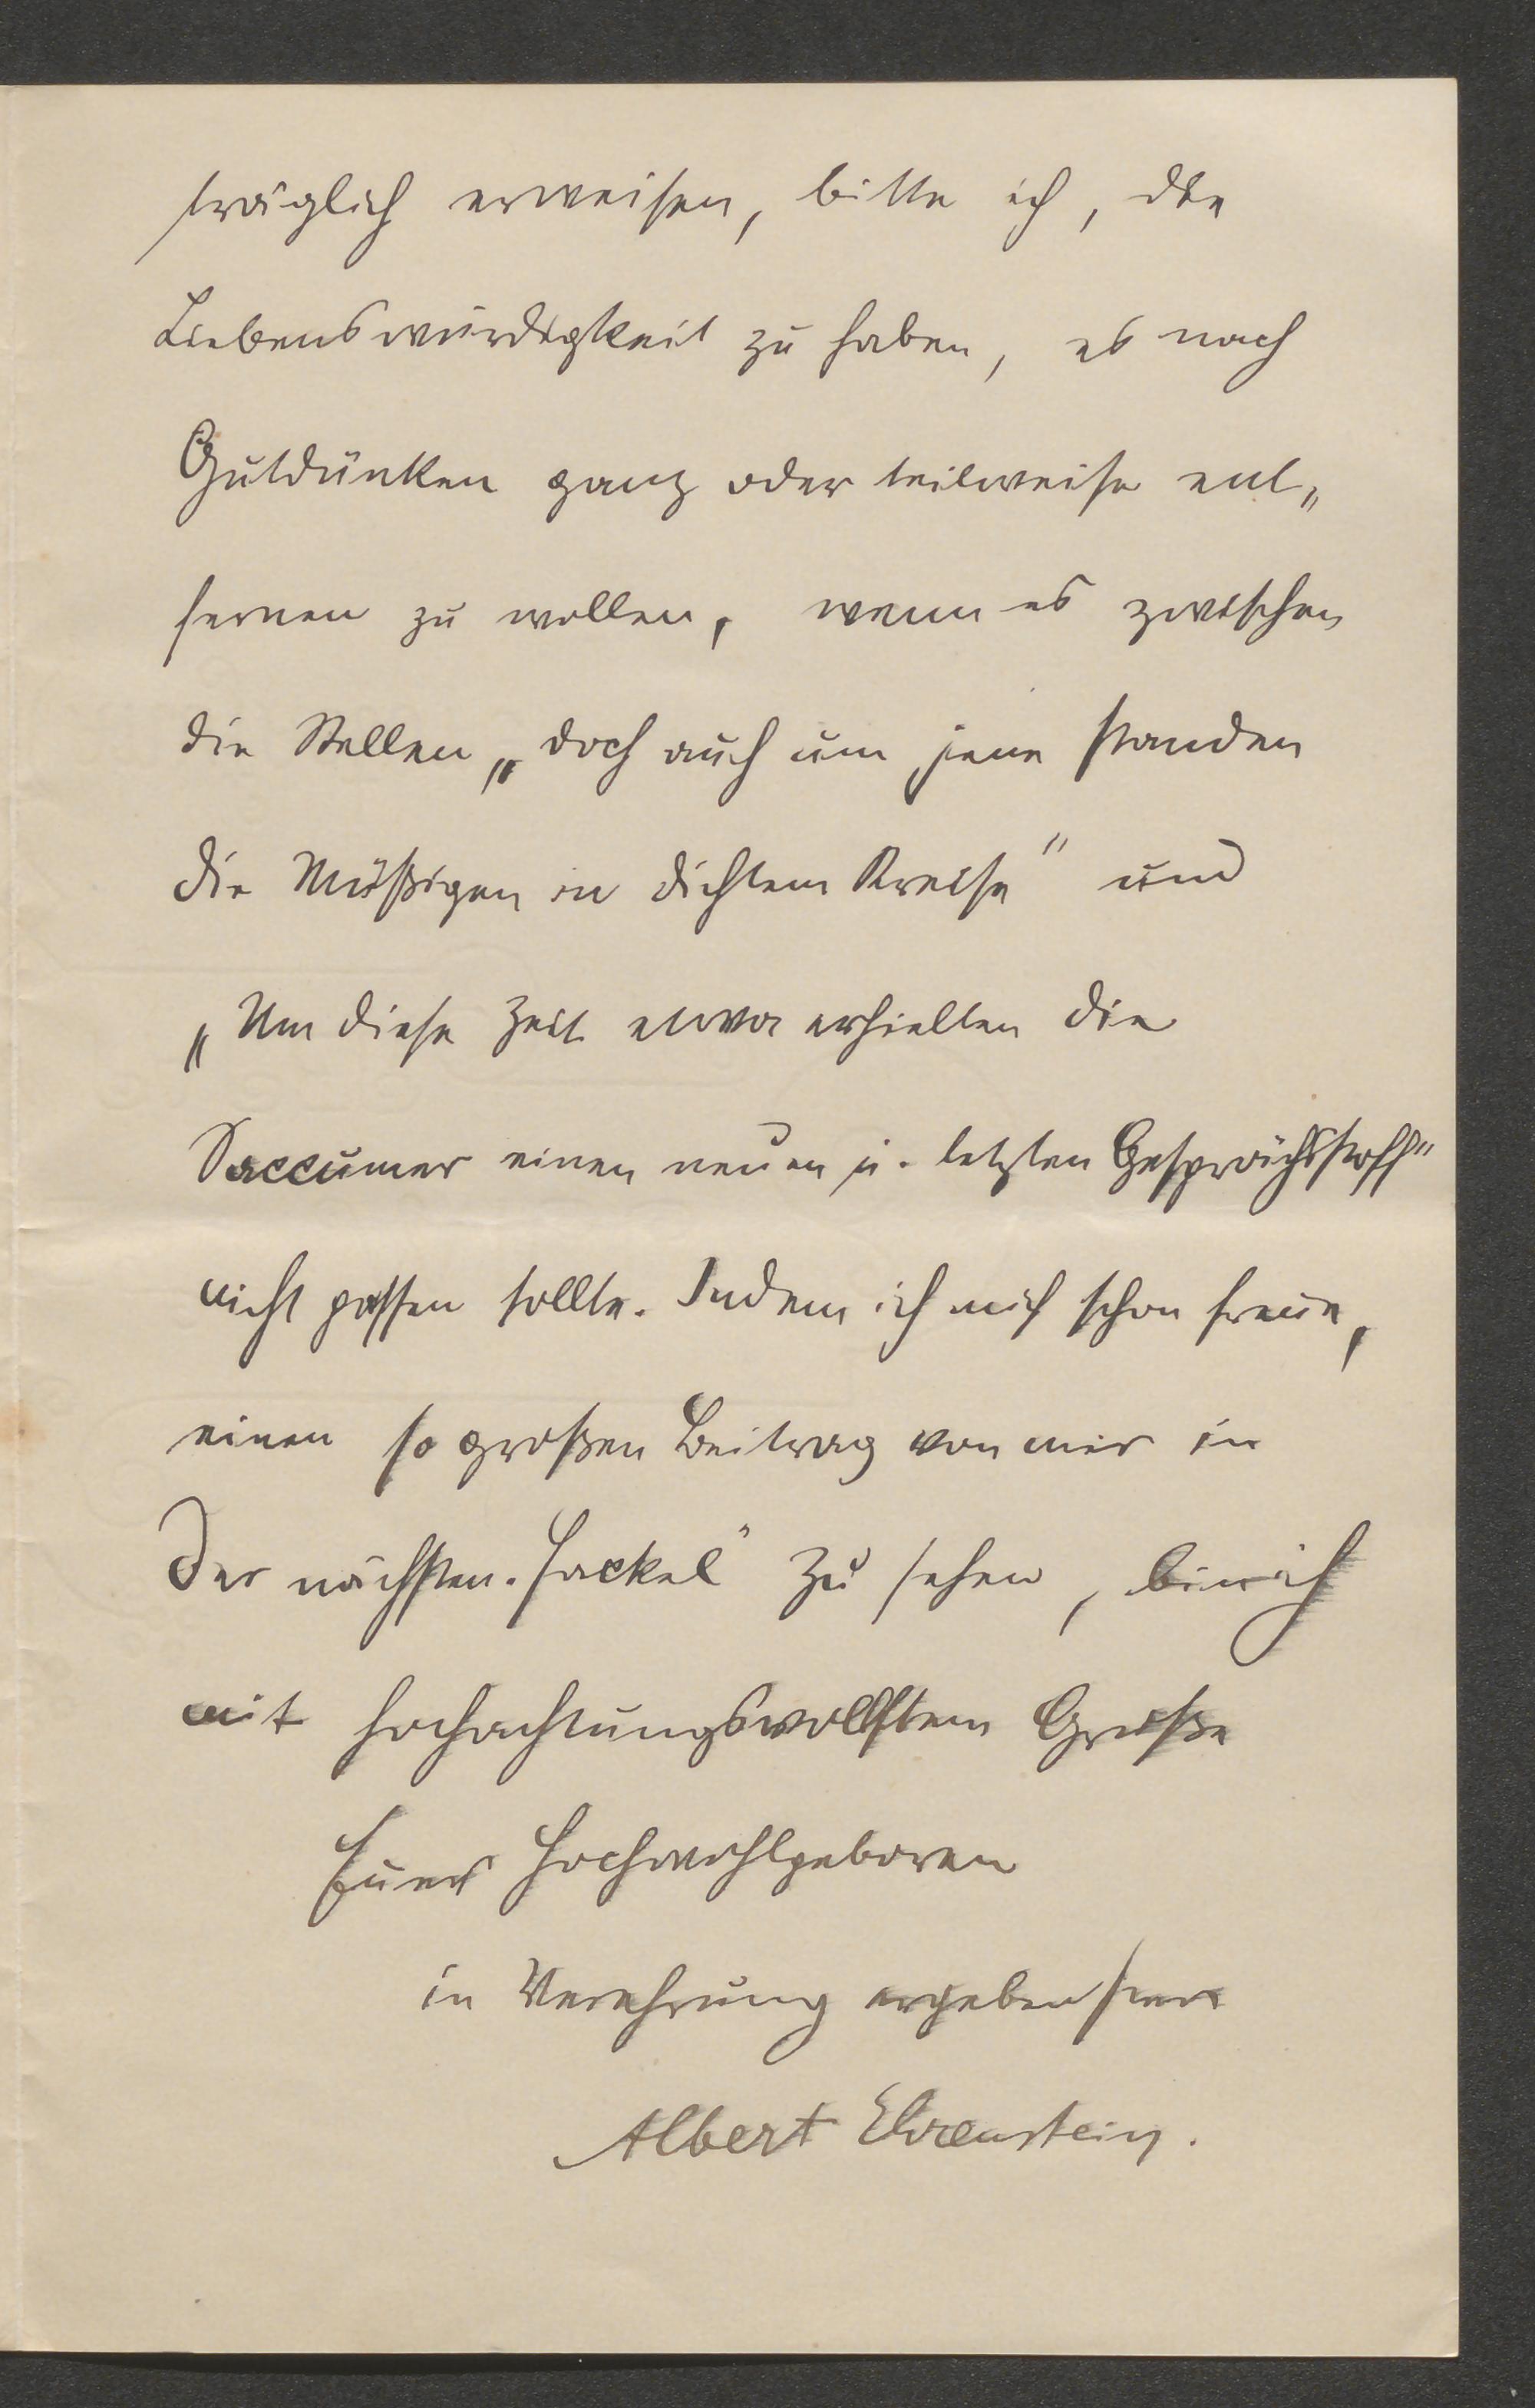 träglich erweisen, bitte ich, die
Liebenswürdigkeit zu haben, es nach
Gutdünken ganz oder teilweise ent„
fernen zu wollen, wenn es zwischen
die Stellen „doch auch um jene standen
die Müßigen in dichtem Kreise“ und
„Um diese Zeit etwa erhielten die
Saccumer einen neuen u. letzten Gesprächsstoff“
nicht passen sollte. Indem ich mich schon freue,
einen so großen Beitrag von mir in
der nächsten „Fackel“ zu sehen, bin ich
mit hochachtungsvollstem Gruße
Euer Hochwohlgeboren
in Verehrung ergebenster
Albert Ehrenstein.